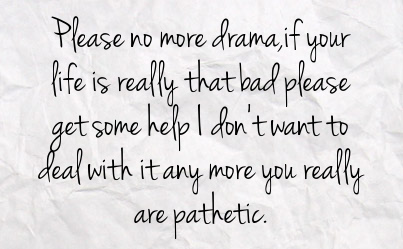 Please no more drama,if your
life is really that bad please
get some help I don't want to
deal with it any more you really
are pathetic.